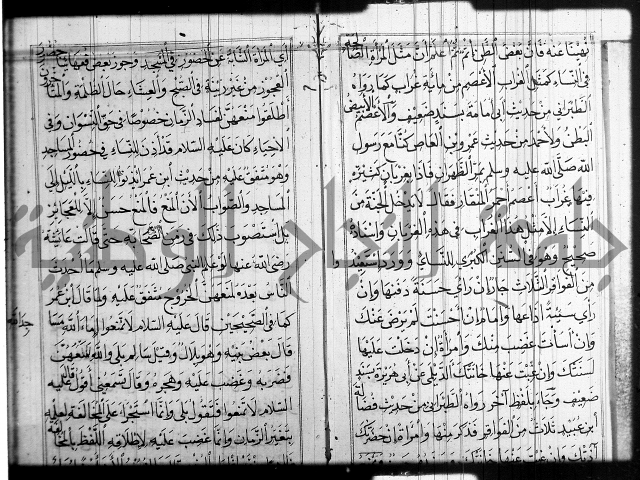 نهينا عنه فان بعض الظن اثم ثم اعلم أن مثل المرأة الصالحة
في النساء كمثل الغراب الأعصم من مائة غراب كما رواه
الطبراني من حديث أبي امامة بسند ضعيف والأعصم الأبيض
البطن ولأحمد من حديث عمرو بن العاص كنا مع رسول
الله صلى الله عليه وسلم بمر الظهران فاذا بغربان كثيرة
فيها غراب أعصم احمر المنقار فقال لا يدخل الجنة من
النساء الا مثل هذا الغراب في هذه الغربان واسناده
صحيح وهو في السنن الكبرى للنسائي وورد استعيذوا
من الفواقر الثلاث جار ان رأى حسنة دفنها وان
رأى سيئة أذاعها وامام ان احسنت لم يرض عنك
وان أسأت غضب منك وامرأة ان دخلت عليها
لسنتك وان غبت عنها خانتك الديلمي عن أبي هريرة بسند
ضعيف وجاء بلفظ آخر رواه الطبراني من حديث فضالة
ابن عبيد ثلاث من الفواقر فذكر منها وامرأة ان حضرت
أي المرأة الثانية عن الحضور في المسجد وجوز بعض فقهائنا حضور
العجوز من غير زينة في الصبح والعشاء حال الظلمة
أطلقوا منعهن لفساد الزمان خصوصا في حق النسوان وفي
الاحياء كان عليه السلام قد أذن للنساء في حضور المساجد
وهو متفق عليه من حديث ابن عمر ائذنوا للنساء بالليل الى
المساجد والصواب الآن المنع فالمنع حسن الا للعجائز
بل استصوب ذلك في زمن الصحابة حتى قالت عائشة
رضي الله عنها لو علم النبي صلى الله عليه وسلم ما أحدث
الناس بعده لمنعهن الخروج متفق عليه ولما قال ابن عمر
كما في الصحيحين قال عليه السلام لا تمنعوا اماء الله مساجد
قال بعض بنيه وهو بلال وقيل سالم بلى والله لنمنعهن
فضربه وغضب عليه وهجره وقال تسمعني أقول قال عليه
السلام لا تمنعوا فتقول بلى وانما استجرأ على المخالفة لعلمه
بتغير الزمان وانما غضب عليه لاطلاقه اللفظ بالمخالفة
جامعة النجاح الوطنية